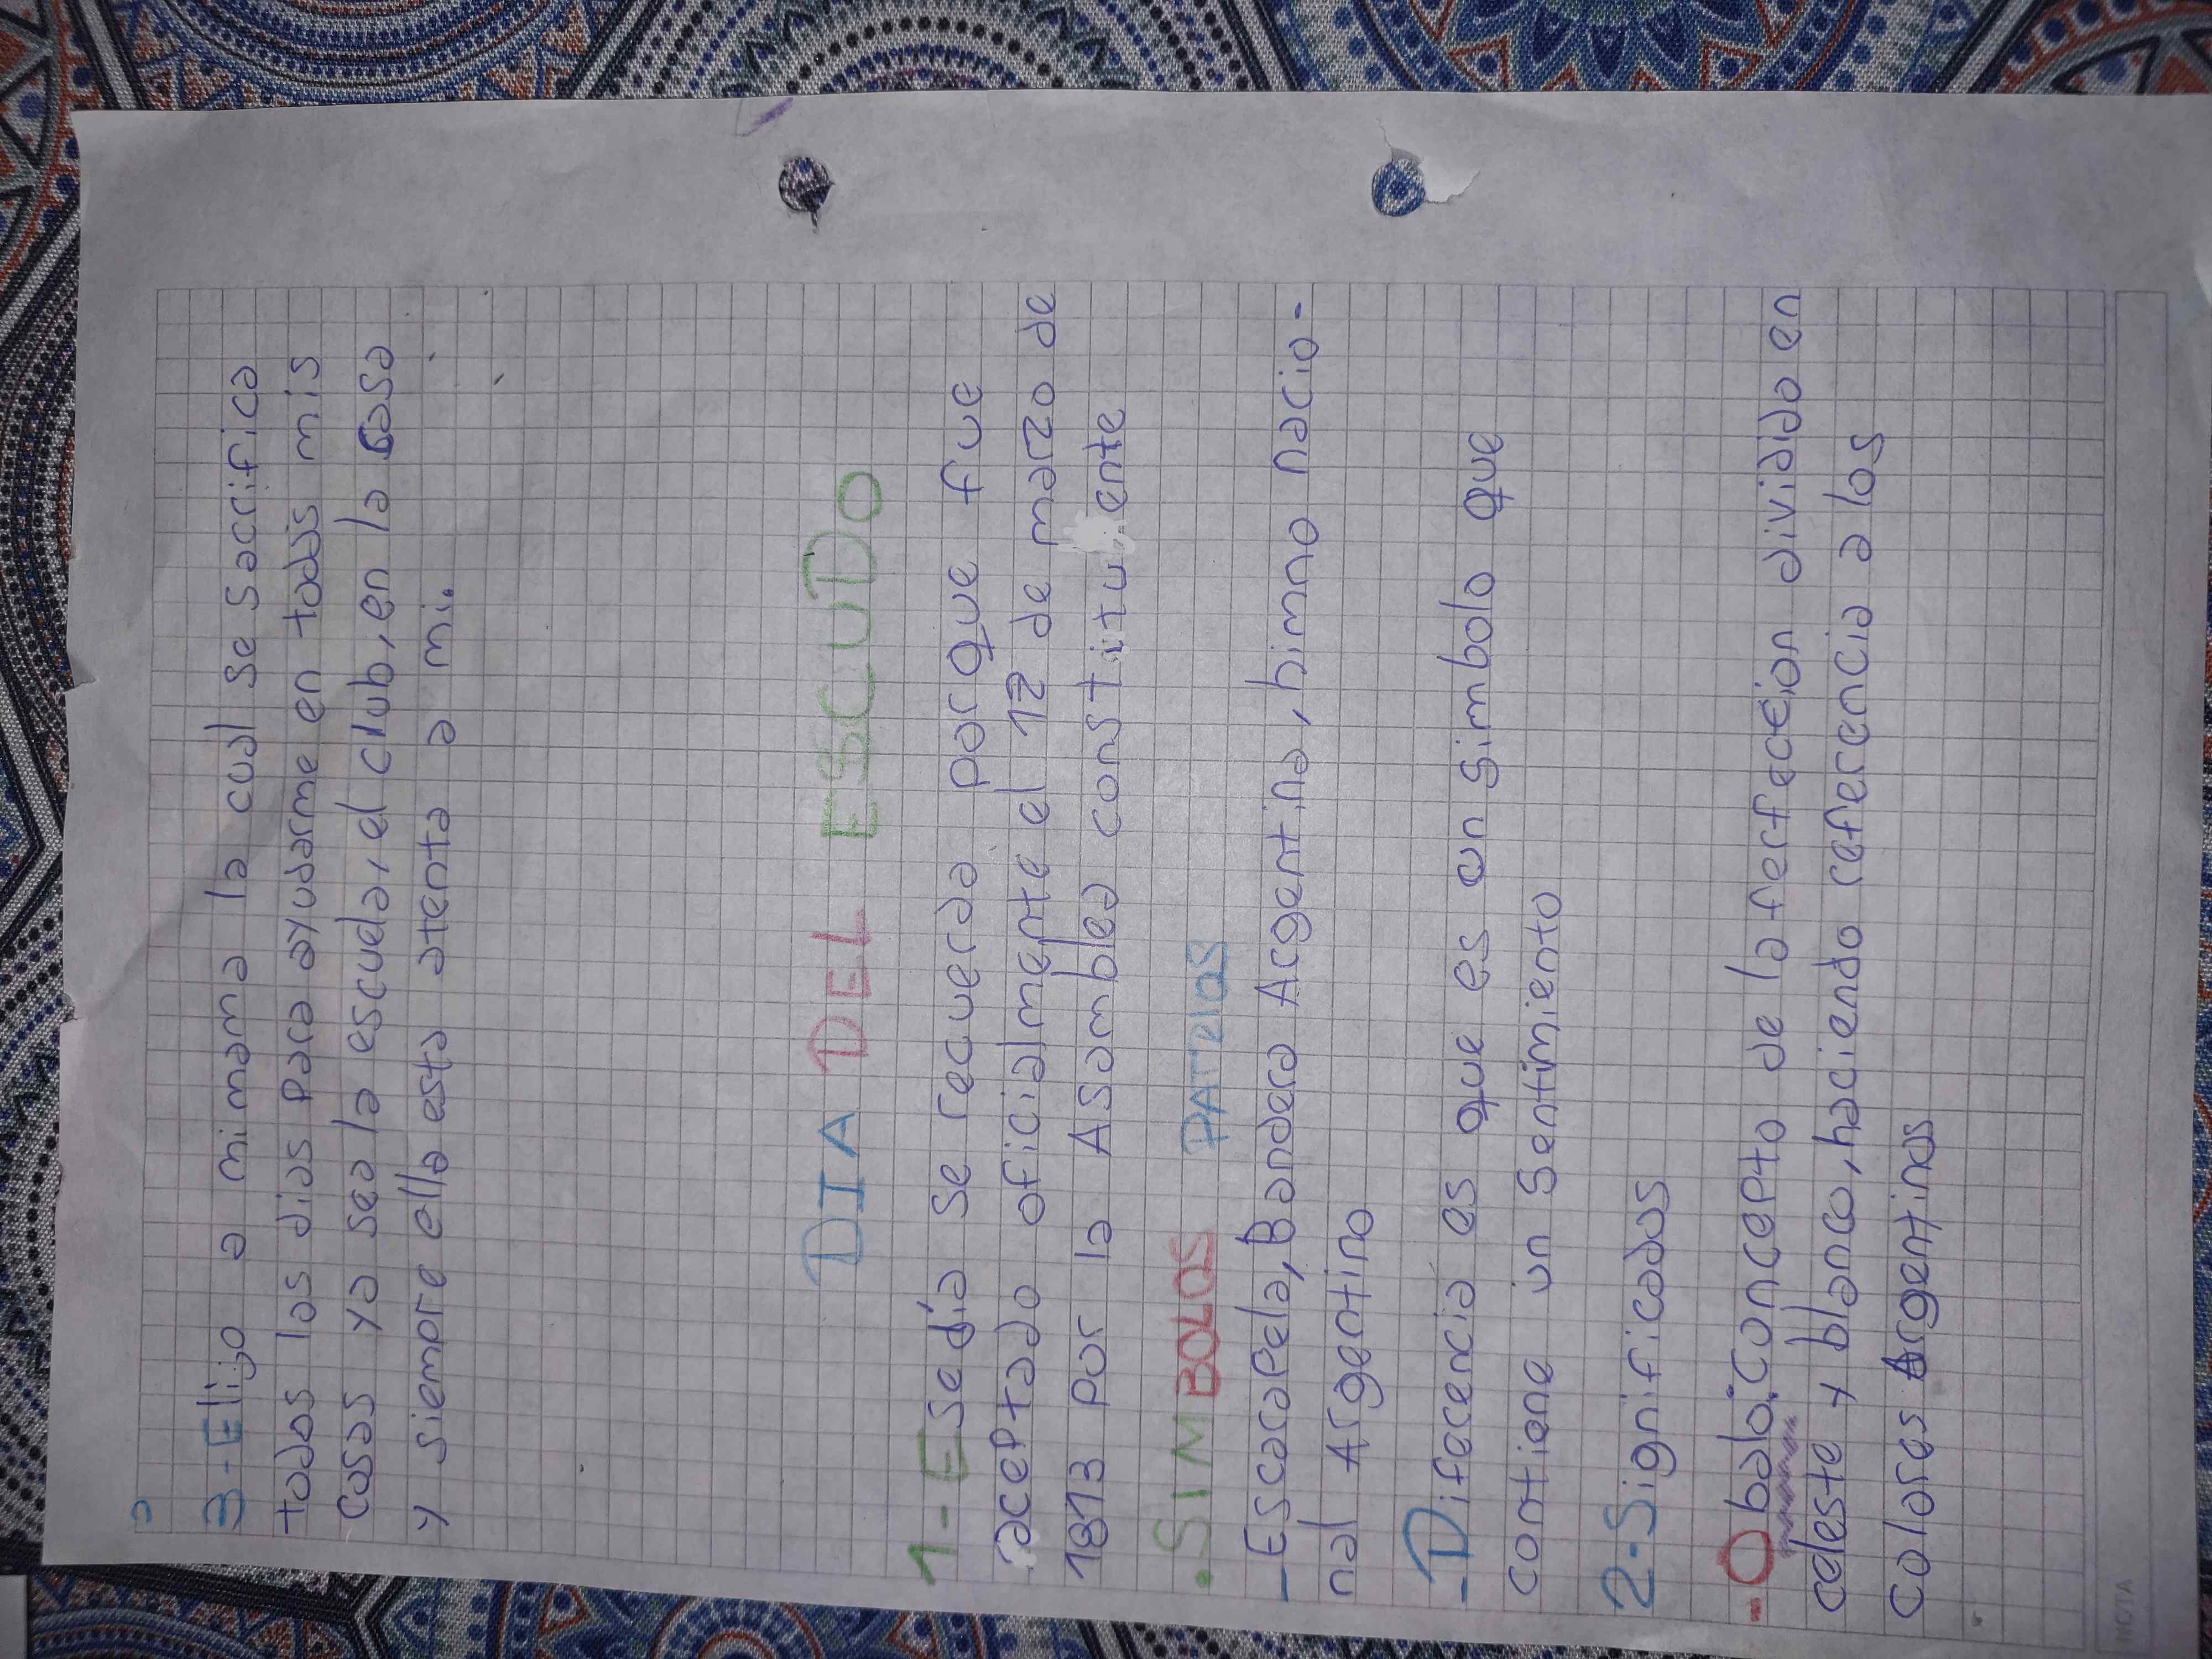 3-Elijo a mi mama la cual se sacrifica
todos los dias para ayudarme en todas mis
cosas ya sea la escuela, el club, en la casa
y siempre ella esta atenta a mi.
DIA DEL ESCUDO
1-Ese día se recuerda porque fue
aceptado oficialmente el 12 de marzo de
1813 por la Asamblea constituyente
.SIMBOLOS PATRIOS
-Escarapela, Bandera Argentina, himno nacio-
nal Argentino
-Diferencia es que es un simbolo que
contiene un Sentimiento
2-Significados
-Obalo: Concepto de la ferfección dividido en
celeste y blanco, haciendo referencia a los
colores Argentinos
NOTA